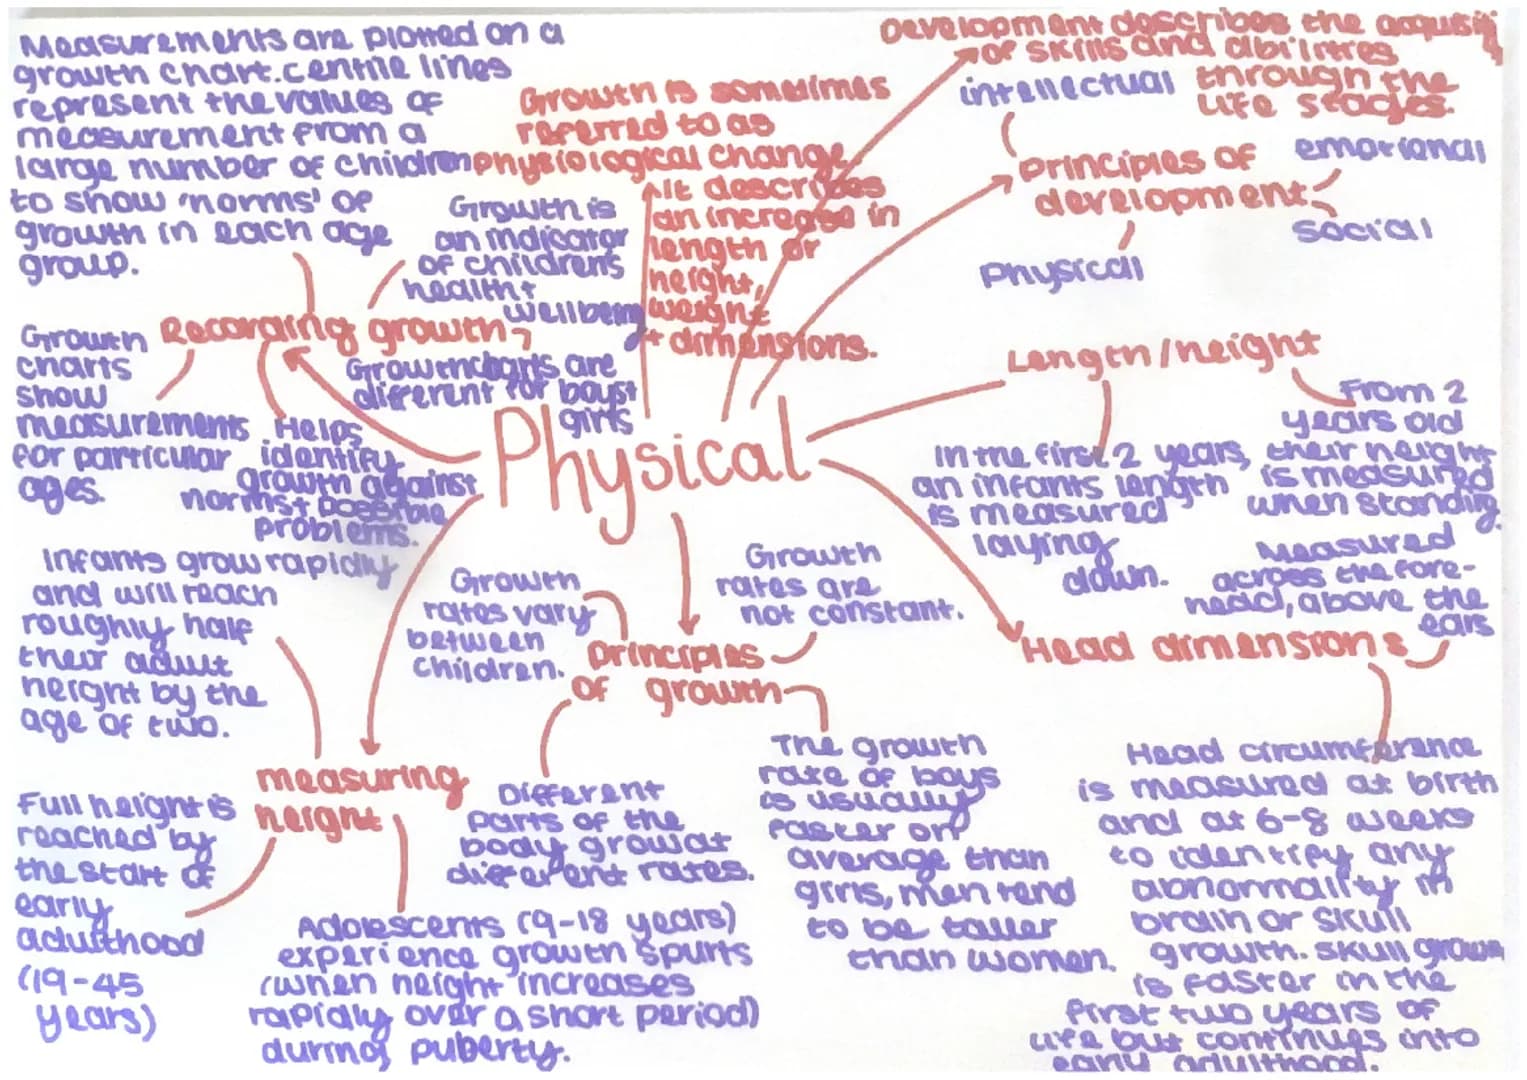 Measurements are plotted on a
growth chart. centile lines
represent the values of
measurement from a
large number of children
to show 'norms' of
growth in each age
group.
Growth is sometimes
referred to as
physiological change.
It describes
an increase in
length or
height,
weight
+ dimensions.
Development describes the
of skills and abilities
through the
life stages.
intellectual
Principles of
development
emotional
social
Physical
Growth is
an indicator
of children's
health +
wellbeing
Recording growth
Growth
charts
show
measurements
for particular
ages.
Growth charts are
different for boys +
girls
Helps
identify
growth against
norms + possible
problems.
Physical
Length/height
In the first 2 years,
an infants length
is measured
laying
down.
From 2
years old
their height
is measured
when standing
Measured
across the fore-
head, above the
ears
Head dimensions
Head circumferance
is measured at birth
and at 6-8 weeks
to identify any
abnormality in
brain or skull
growth. skull growth
is faster in the
first two years of
life but continues into
early adulthood.
Growth
rates vary
between
children.
Growth
rates are
not constant.
Principles
of growth
Different
parts of the
body grow at
different rates.
The growth
rate of boys
is usually
faster on
average than
girls, men tend
to be taller
than women.
Infants grow rapidly
and will reach
roughly half
their adult
height by the
age of two.
measuring
height
Full height is
reached by
the start of
early
adulthood
(19-45
years)
Adolescents (9-18 years)
experience growth spurts
(when height increases
rapidly over a short period)
during puberty.